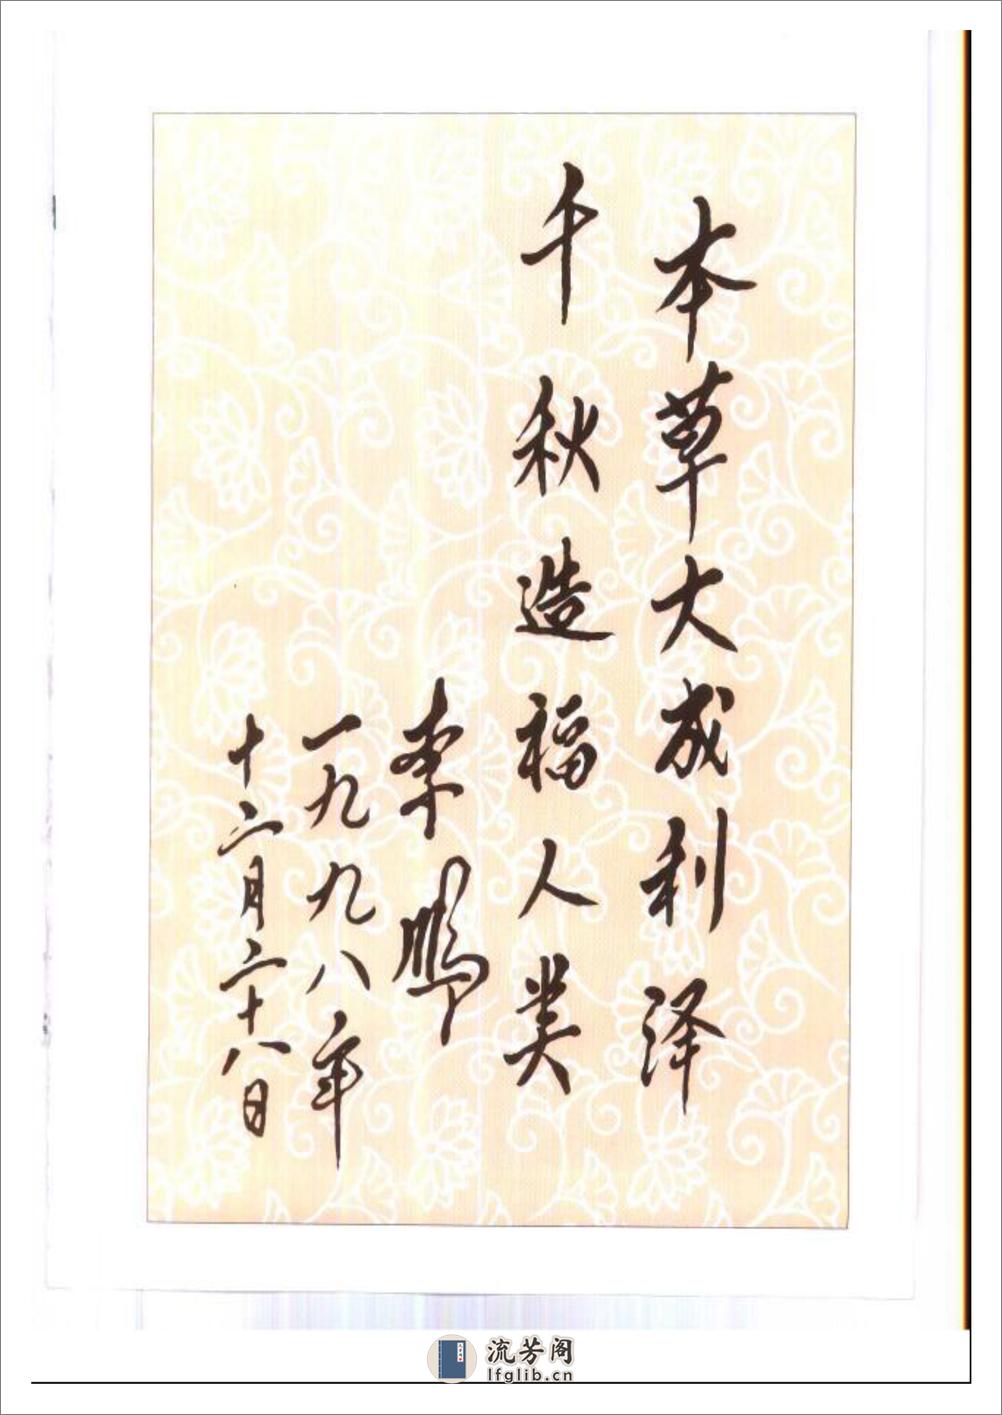 本草大成利泽
千秋造福人类
李鹏
一九九八年
十二月二十八日
流芳阁
lfglib.cn